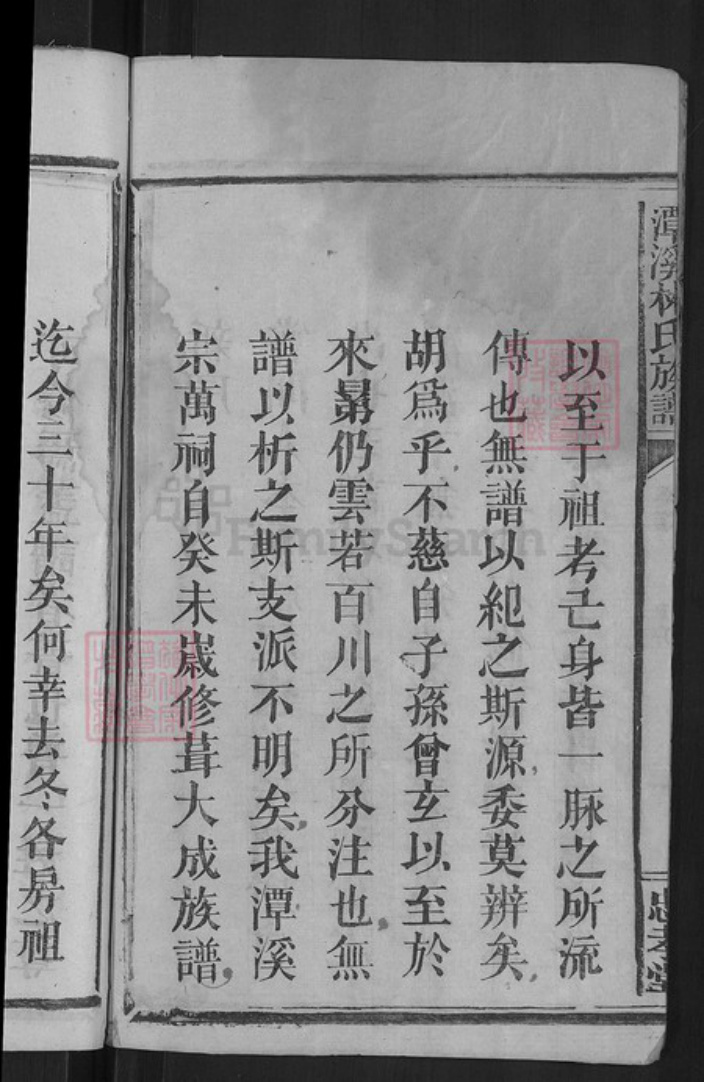 潭溪林氏族譜
忠孝堂
以至于祖考亡身皆一脈之所流
傳也無譜以紀之斯源委莫辨矣
胡爲乎不慈自子孫曾玄以至於
來晜仍雲若百川之所分注也無
譜以析之斯支派不明矣我潭溪
宗萬祠自癸未歲修葺大成族譜
迄今三十年矣何幸去冬各房祖
FamilySearch